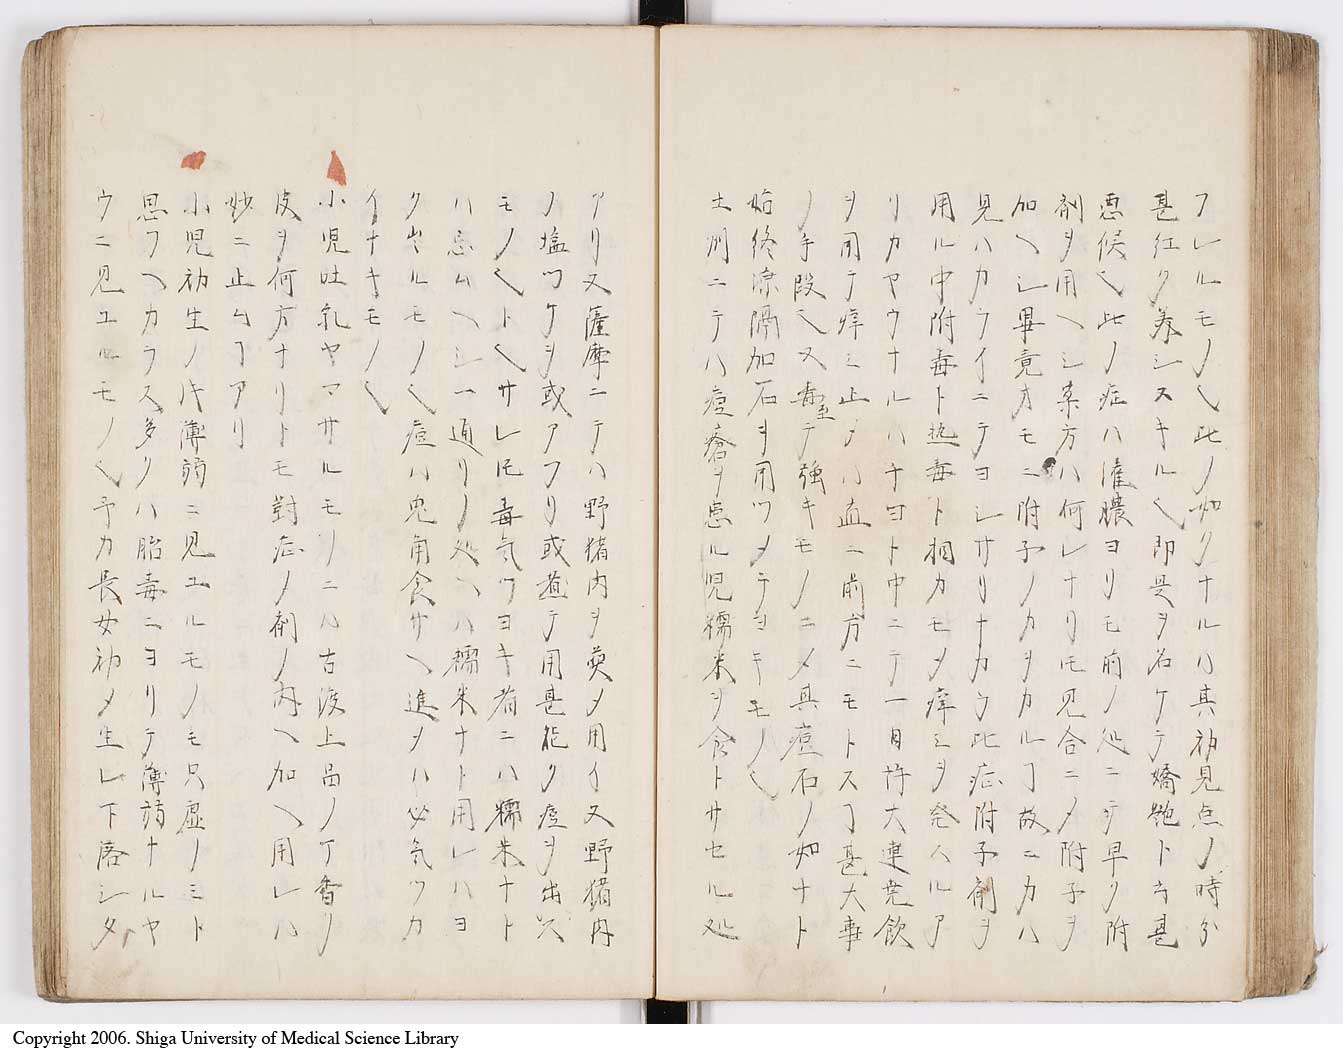 フレルモノ也此ノ如クナルハ其初見点ノ時分
甚紅ク美シスキル也即是ヲ名ケテ嬌艶ト云甚
悪候也此ノ症ハ灌膿ヨリモ前ノ処ニテ早ク附
剤ヲ用ヘシ薬方ハ何レナリ𪜈見合ニメ附子ヲ
加ヘシ畢竟オモニ附子ノカヲカルヿ故ニカハ
見ハカライニテヨシサリナカラ此症附子剤ヲ
用ル中附毒ト热毒ト相カモメ痒ミヲ発スルア
リカヤウナルハチヨト中ニテ一日許大連芫飲
ヲ用テ痒ミ止メハ直ニ前方ニモトスヿ甚大事
ノ手段也又毒至テ強キモノニメ其痘石ノ如ナト
始終涼隔加石ヲ用ツメテヨキモノ也
土州ニテハ痘瘡ヲ患ル児糯米ヲ食トサセル処
アリ又薩摩ニテハ野猪肉ヲ羮メ用イ又野猪肉
ノ塩ツケヲ或アフリ或煮テ用甚能ク痘ヲ出スス
モノ也ト也サレ𪜈毒気ツヨキ者ニハ糯米ナト
ハ忌ムヘシ一通リノ処ヘハ糯米ナト用レハヨ
ク出ルモノ也痘ハ兎角食サヘ進メハ必気ツカ
イナキモノ也
小児吐乳ヤマサルモノニハ古渡上品ノ丁香ノ
皮ヲ何方ナリトモ對症ノ剤ノ内ヘ加ヘ用レハ
妙ニ止ムヿアリ
小児初生ノ片薄弱ニ見ユルモノモ只虚ノミト
思フヘカラス多クハ胎毒ニヨリテ薄弱ナルヤ
ウニ見ユルモノ也予カ長女初メ生レ下落シタ
Copyright 2006. Shiga University of Medical Science Library